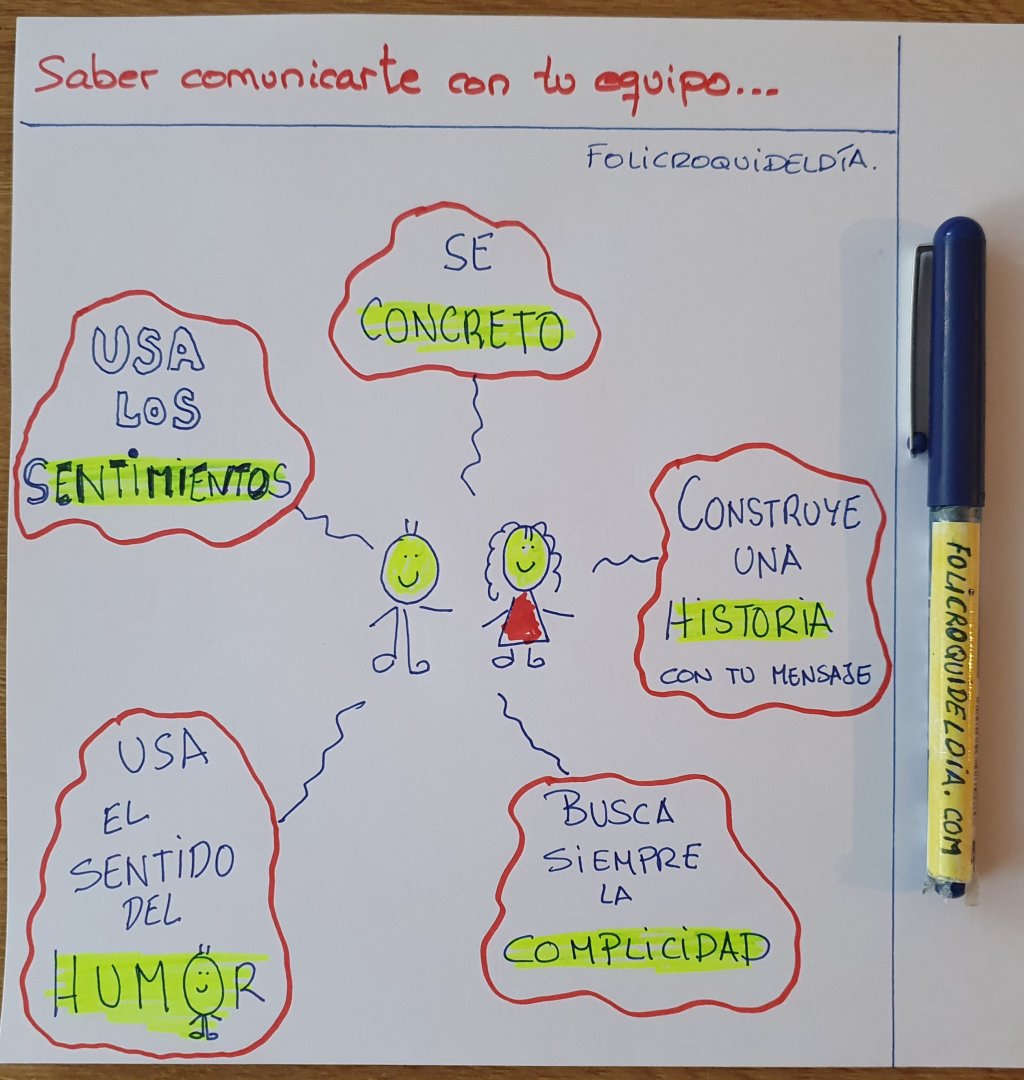 Saber comunicarte con tu equipo...
FOLICROQUIDELDÍA.
SE
CONCRETO
USA
LOS
SENTIMIENTOS
CONSTRUYE
UNA
HISTORIA
CON TU MENSAJE
USA
EL
SENTIDO
DEL
HUMOR
BUSCA
SIEMPRE
LA
COMPLICIDAD
FOLICROQUIDELDIA.COM